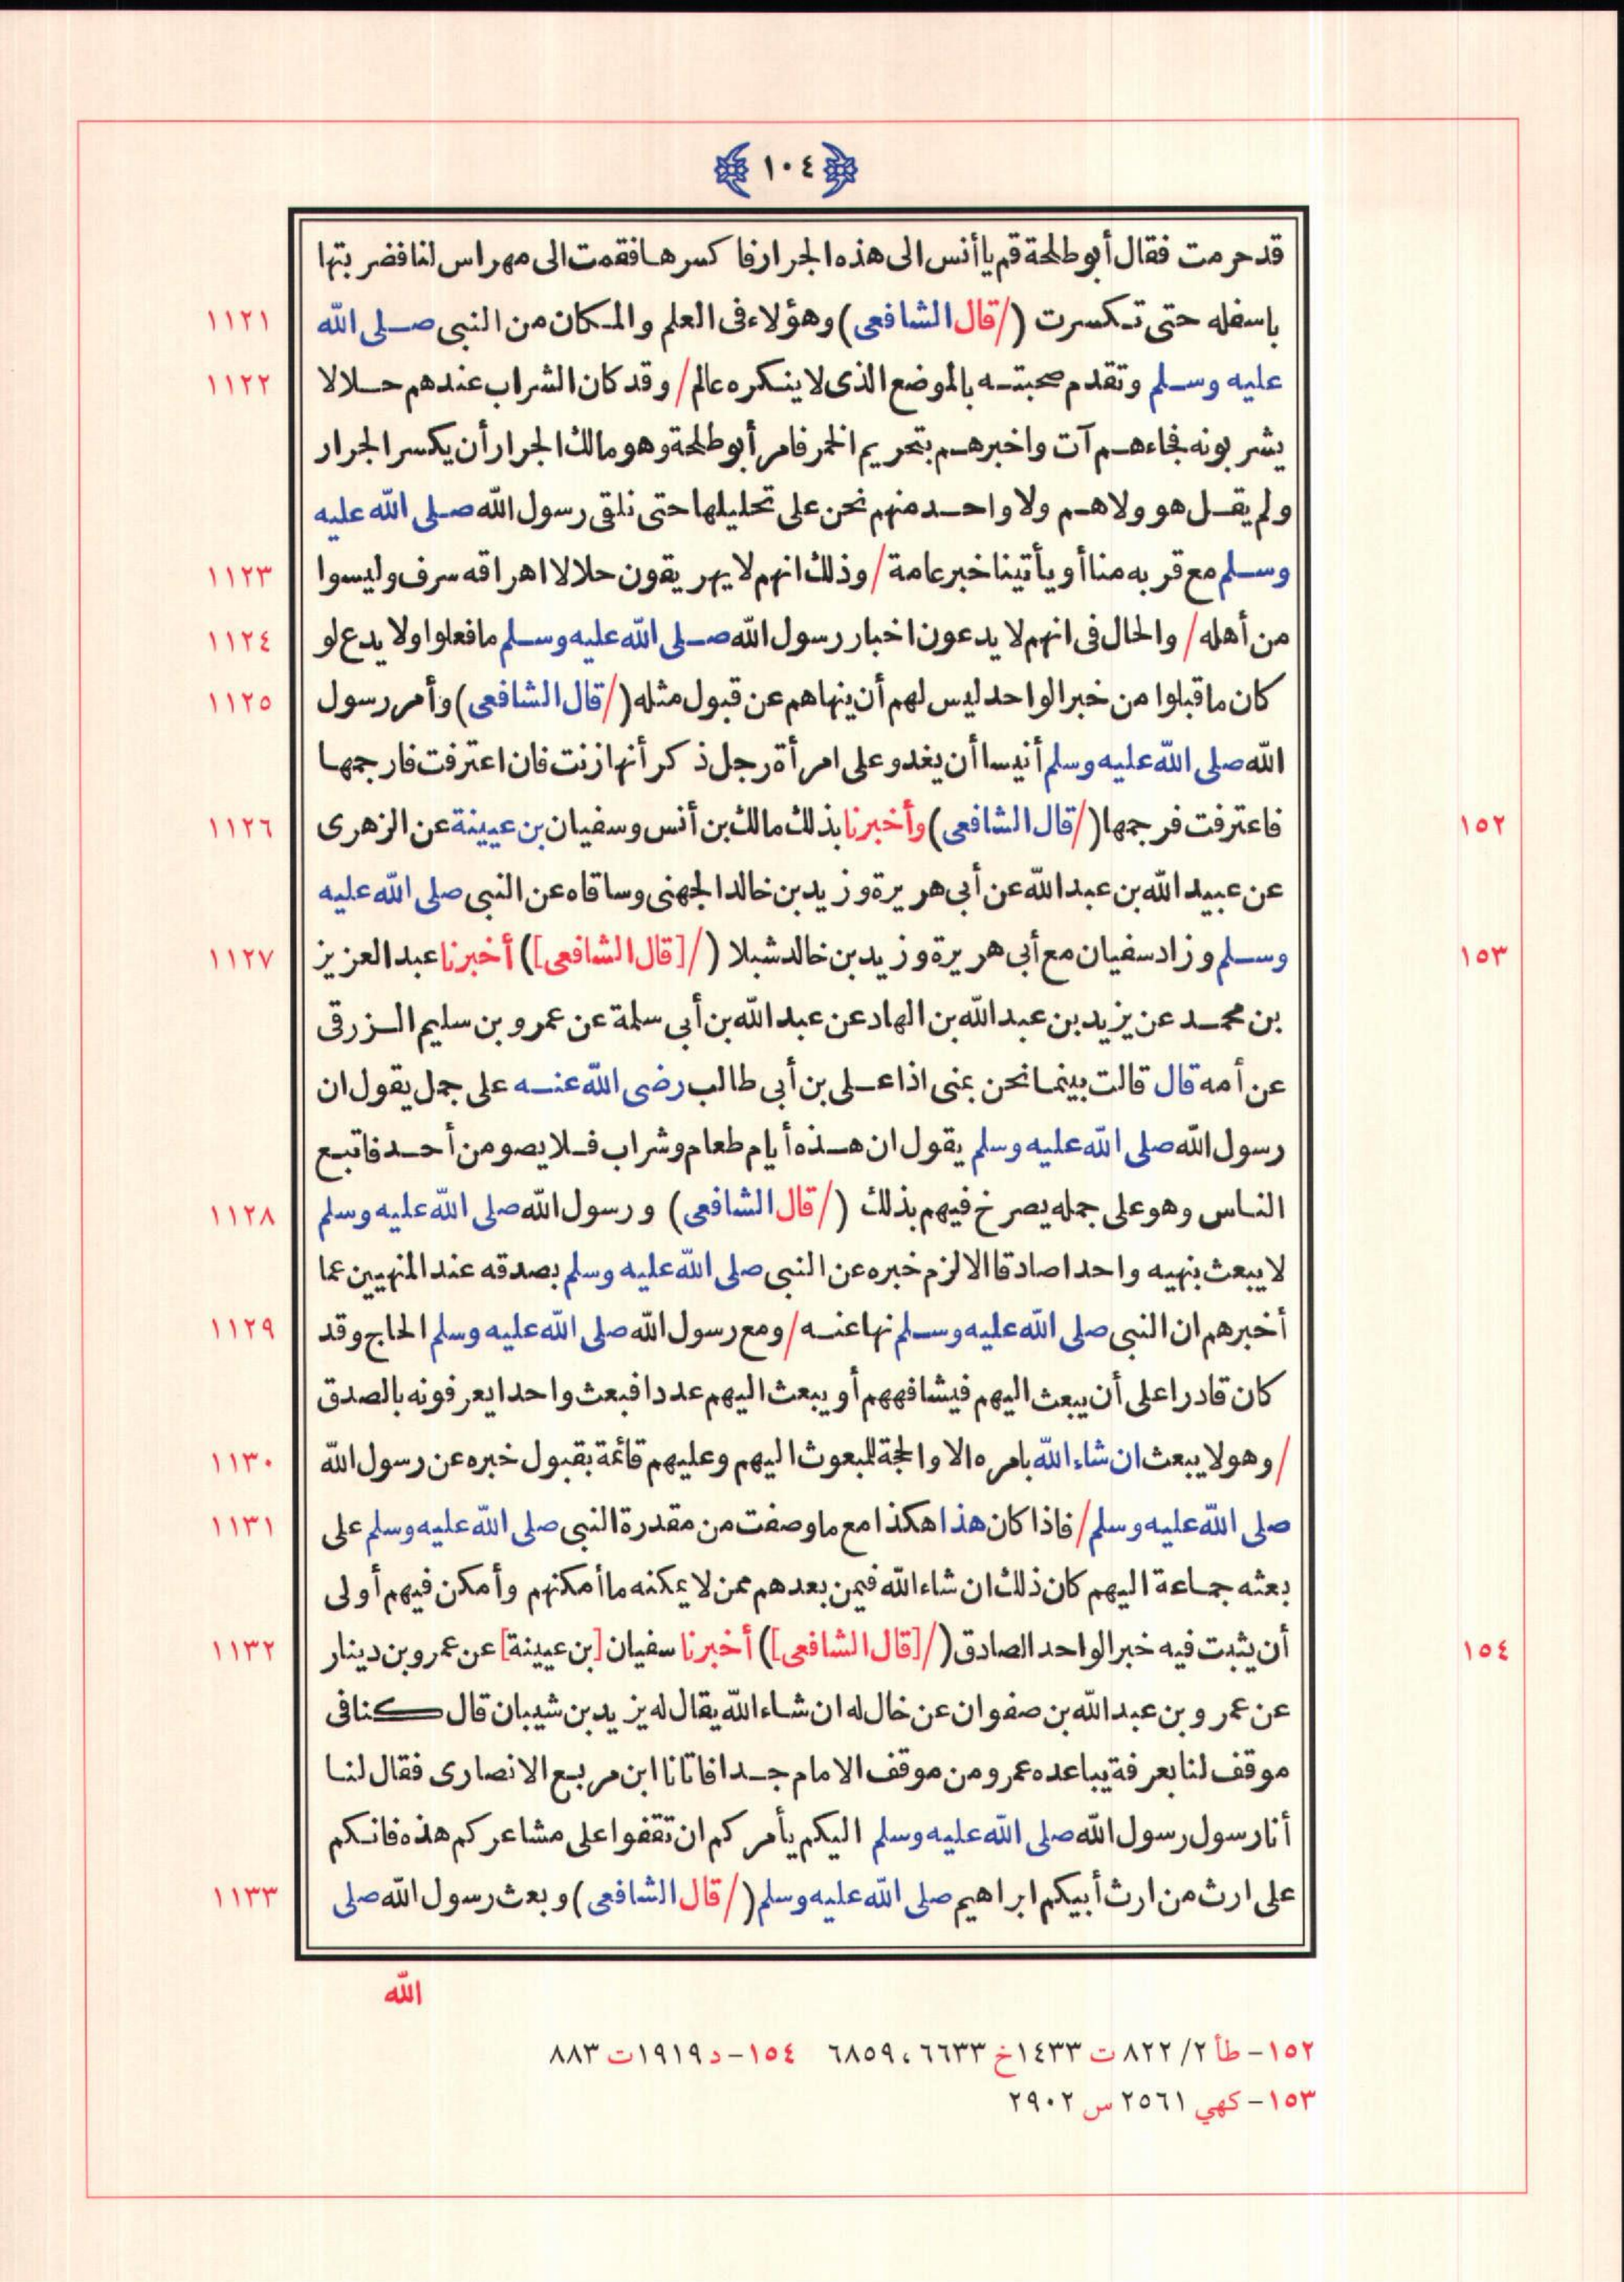 ١٠٤
قد حرمت فقال أبو طلحة قم يا أنس الى هذه الجرار فا كسرها فقمت الى مهراس لنا فضربتها
١١٢١ باسفله حتى تكسرت (/قال الشافعى) وهؤلاء فى العلم والمكان من النبى صلى الله
١١٢٢ عليه وسلم وتقدم صحبته بالموضع الذى لا ينكره عالم/ وقد كان الشراب عندهم حلالا
يشربونه فجاءهم آت واخبرهم بتحريم الخمر فامر أبو طلحة وهو مالك الجرار أن يكسر الجرار
ولم يقل هو ولا هم ولا واحد منهم نحن على تحليلها حتى نلقى رسول الله صلى الله عليه
١١٢٣ وسلم مع قربه منا أو يأتينا خبر عامة/ وذلك انهم لا يهريقون حلالا اهراقه سرف وليسوا
١١٢٤ من أهله/ والحال فى انهم لا يدعون اخبار رسول الله صلى الله عليه وسلم ما فعلوا ولا يدع لو
١١٢٥ كان ما قبلوا من خبر الواحد ليس لهم أن ينهاهم عن قبول مثله (/قال الشافعى) وأمر رسول
الله صلى الله عليه وسلم أنيسا أن يغدو على امرأة رجل ذكر أنها زنت فان اعترفت فارجمها
١٥٢ ١١٢٦ فاعترفت فرجمها (/قال الشافعى) وأخبرنا بذلك مالك بن أنس وسفيان بن عيينة عن الزهرى
عن عبيد الله بن عبد الله عن أبى هريرة وزيد بن خالد الجهنى وساقاه عن النبى صلى الله عليه
١٥٣ ١١٢٧ وسلم وزاد سفيان مع أبى هريرة وزيد بن خالد شبلا (/[قال الشافعى]) أخبرنا عبد العزيز
بن محمد عن يزيد بن عبد الله بن الهاد عن عبد الله بن أبى سلمة عن عمرو بن سليم الزرقى
عن أمه قال قالت بينما نحن بمنى اذا على بن أبى طالب رضى الله عنه على جمل يقول ان
رسول الله صلى الله عليه وسلم يقول ان هذه أيام طعام وشراب فلا يصومن أحد فاتبع
١١٢٨ الناس وهو على جمله يصرخ فيهم بذلك (/قال الشافعى) ورسول الله صلى الله عليه وسلم
لا يبعث بنهيه واحدا صادقا الا لزم خبره عن النبى صلى الله عليه وسلم بصدقه عند المنهيين عما
١١٢٩ أخبرهم ان النبى صلى الله عليه وسلم نها عنه/ ومع رسول الله صلى الله عليه وسلم الحاج وقد
كان قادرا على أن يبعث اليهم فيشافههم أو يبعث اليهم عددا فبعث واحدا يعرفونه بالصدق
١١٣٠ /وهو لا يبعث ان شاء الله بامره الا والحجة للمبعوث اليهم وعليهم قائمة بقبول خبره عن رسول الله
١١٣١ صلى الله عليه وسلم/ فاذا كان هذا هكذا مع ما وصفت من مقدرة النبى صلى الله عليه وسلم على
بعثه جماعة اليهم كان ذلك ان شاء الله فيمن بعدهم ممن لا يمكنه ما أمكنهم وأمكن فيهم أولى
١٥٤ ١١٣٢ أن يثبت فيه خبر الواحد الصادق (/[قال الشافعى]) أخبرنا سفيان [بن عيينة] عن عمرو بن دينار
عن عمرو بن عبد الله بن صفوان عن خال له ان شاء الله يقال له يزيد بن شيبان قال كنا فى
موقف لنا بعرفة يباعده عمرو من موقف الامام جدا فاتانا ابن مربع الانصارى فقال لنا
أنا رسول رسول الله صلى الله عليه وسلم اليكم يأمركم ان تقفوا على مشاعركم هذه فانكم
١١٣٣ على ارث من ارث أبيكم ابراهيم صلى الله عليه وسلم (/قال الشافعى) وبعث رسول الله صلى
الله
١٥٢- طأ ٢/ ٨٢٢ ت ١٤٣٣ خ ٦٦٣٣، ٦٨٥٩ ١٥٤- د ١٩١٩ ت ٨٨٣
١٥٣- كهي ٢٥٦١ س ٢٩٠٢